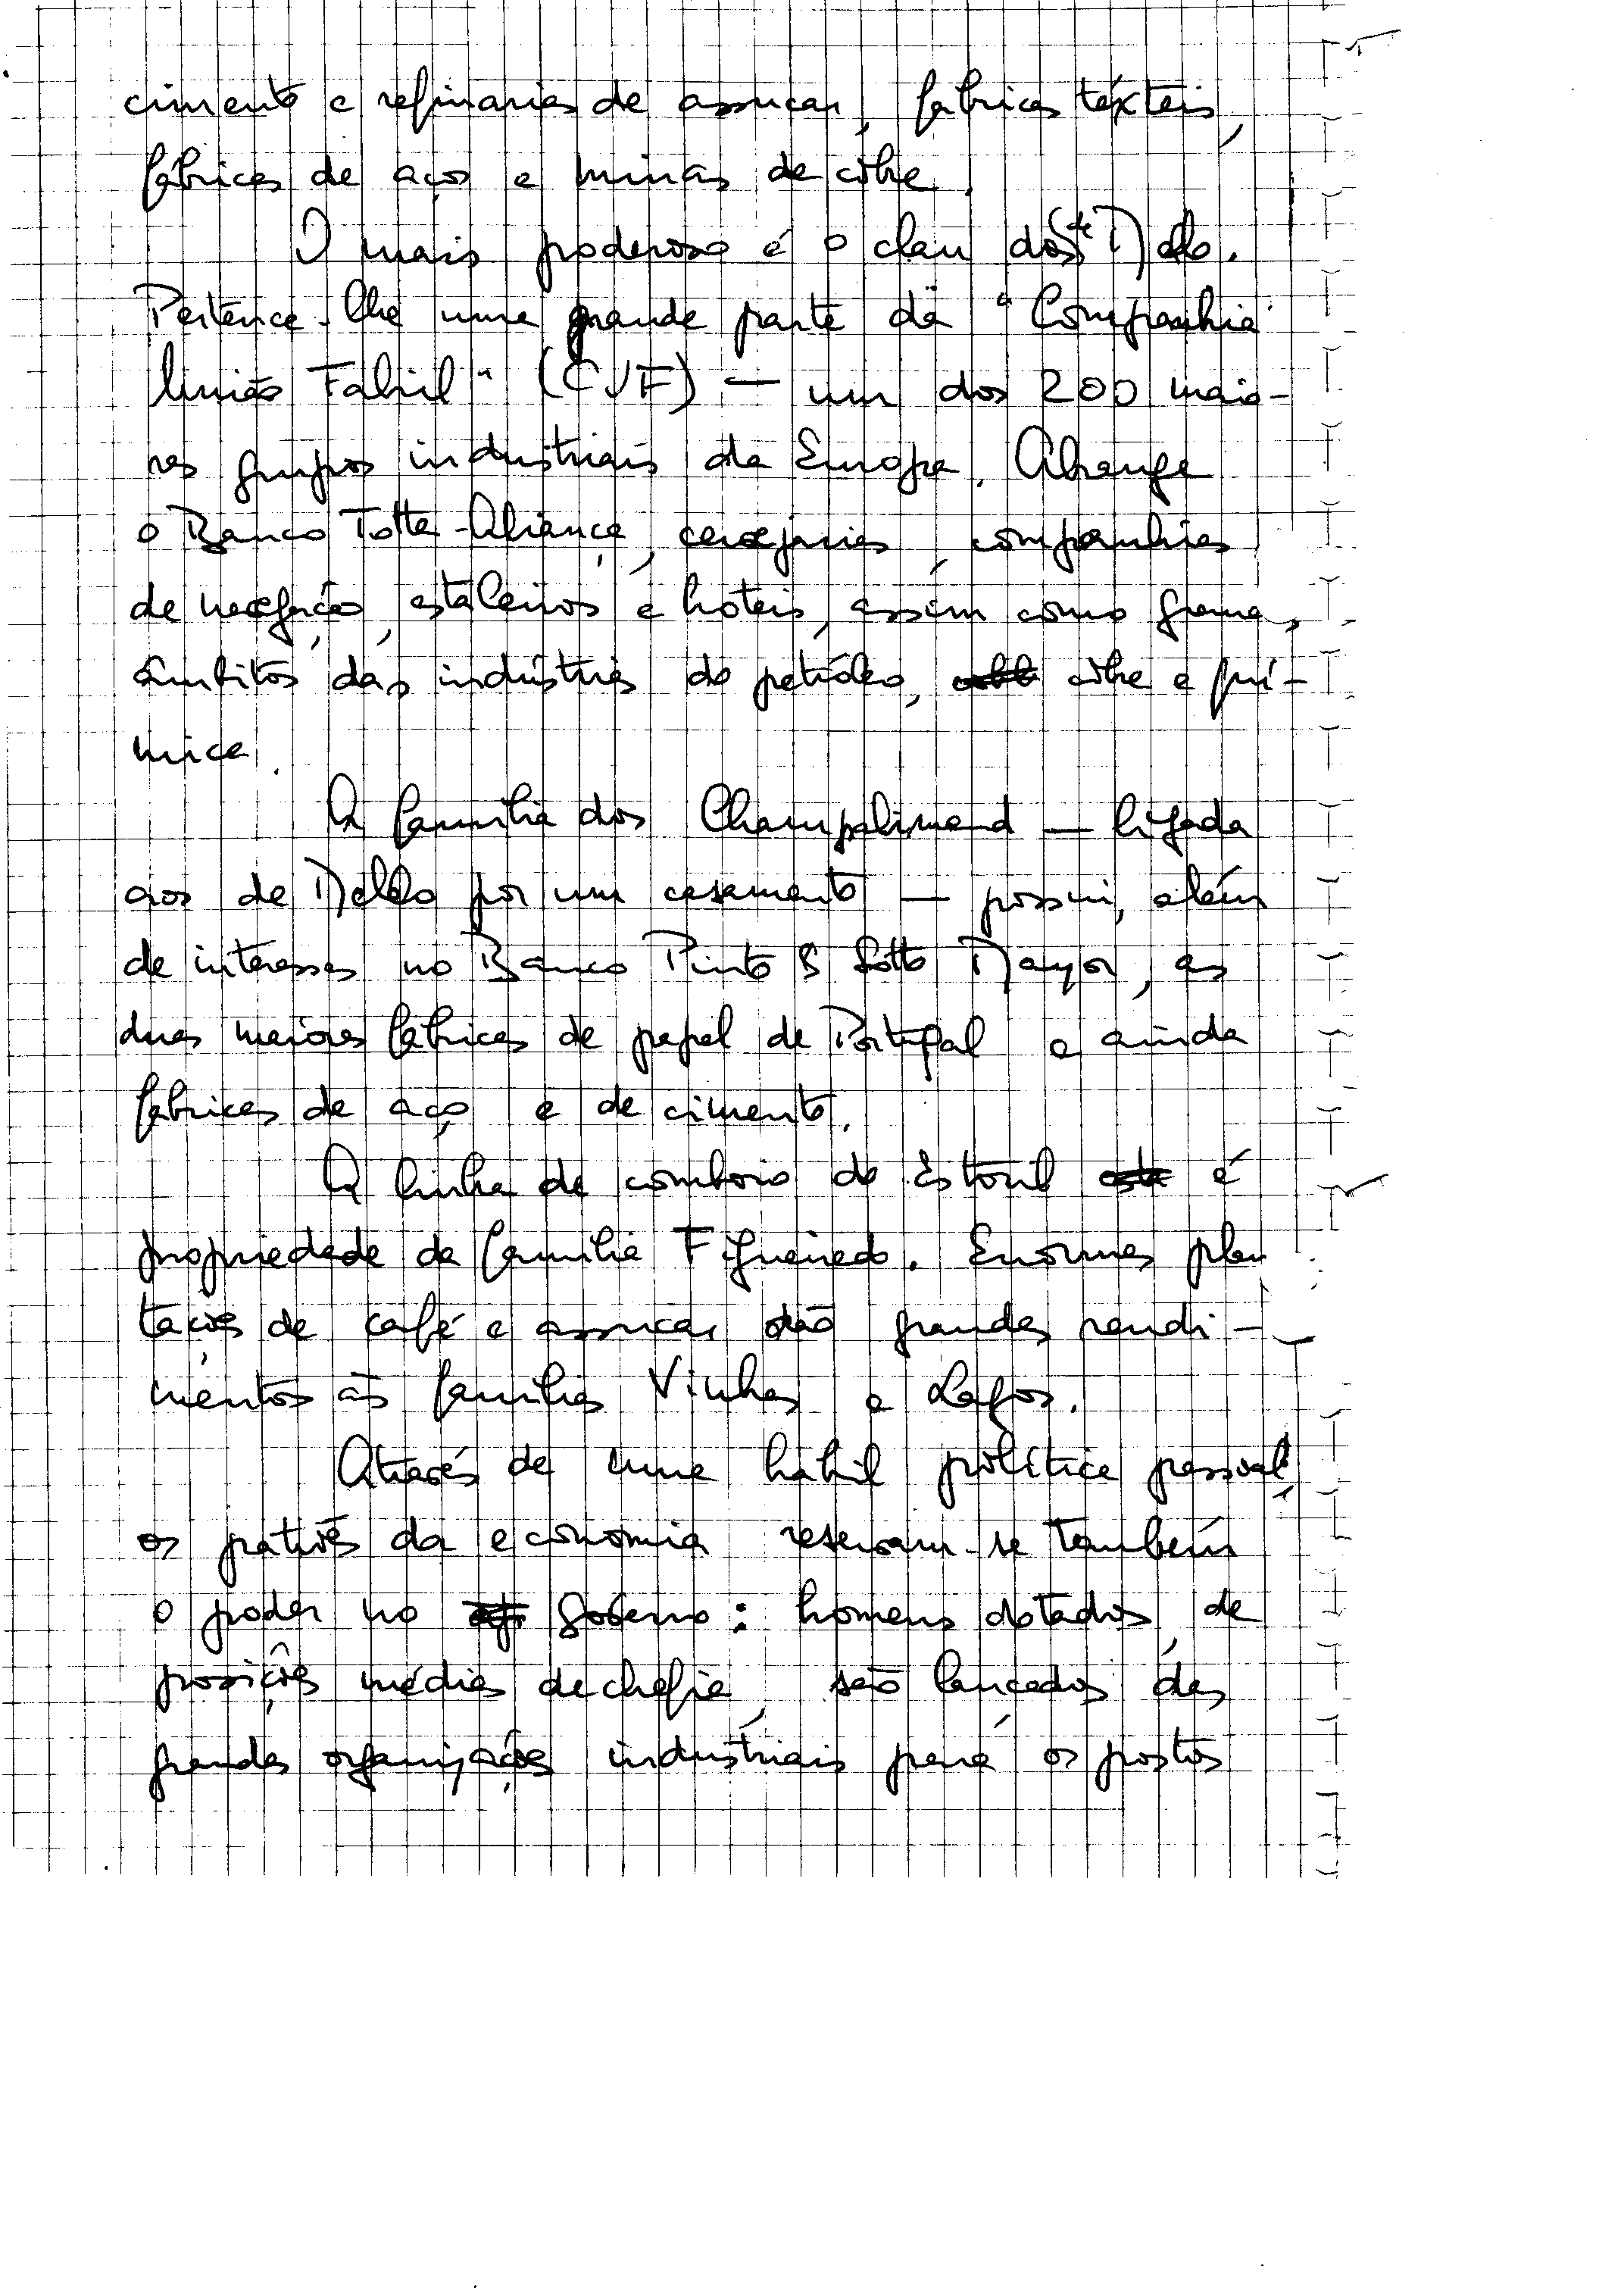 cimento e refinarias de assucar, fabricas têxteis,
fábricas de aços e minas de cobre.
O mais poderoso é o clan dos de Mello.
Pertence-lhe uma grande parte da "Companhia
União Fabril" (CUF) — um dos 200 maio-
res grupos industriais da Europa. Abrange
o Banco Totta-Aliança, cervejarias, companhias
de navegação, estaleiros e hoteis, assim como grandes
âmbitos das indústrias do petróleo, cobre e quí-
mica.
A família dos Champalimaud — ligada
aos de Mello por um casamento — possui, além
de interesses no Banco Pinto & Sotto Mayor, as
duas maiores fábricas de papel de Portugal e ainda
fabricas de aço e de cimento.
A linha de comboio do Estoril é
propriedade da família Figueiredo. Enormes plan
tações de café e assucar dão grandes rendi-
mentos às famílias Vinhas e Lagos.
Através de uma hábil política pessoal,
os patrões da economia reservam-se também
o poder no Governo: homens dotados, de
posições médias de chefia, são lançados das
grandes organizações industriais para os postos